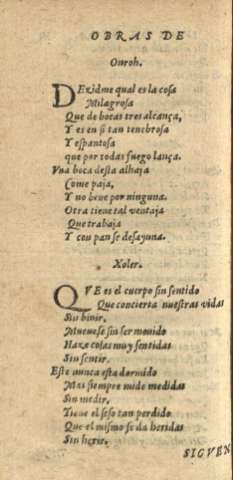 OBRAS DE
Onroh.
DEzidme qual es la cosa
Milagrosa
Que de bocas tres alcança,
Y es en si tan tenebrosa
Y espantosa
que por todas fuego lança.
Vna boca desta alhaja
Come paja,
Y no beue por ninguna.
Otra tiene tal ventaja
Que trabaja
Y con pan se desayuna.
Xoler.
QVE es el cuerpo sin sentido
Que concierta nuestras vidas
Sin biuir.
Mueuese sin ser mouido
Haze cosas muy sentidas
Sin sentir.
Este nunca esta dormido
Mas siempre mide medidas
Sin medir.
Tiene el seso tan perdido
Que el mismo se da heridas
Sin herir.
SIGVEN